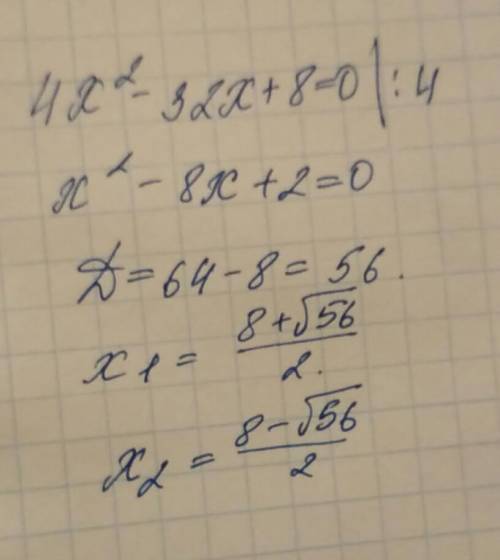 4x² - 32x + 8 = 0 | : 4
x² - 8x + 2 = 0
D = 64 - 8 = 56.
x1 = (8 + √56) / 2.
x2 = (8 - √56) / 2